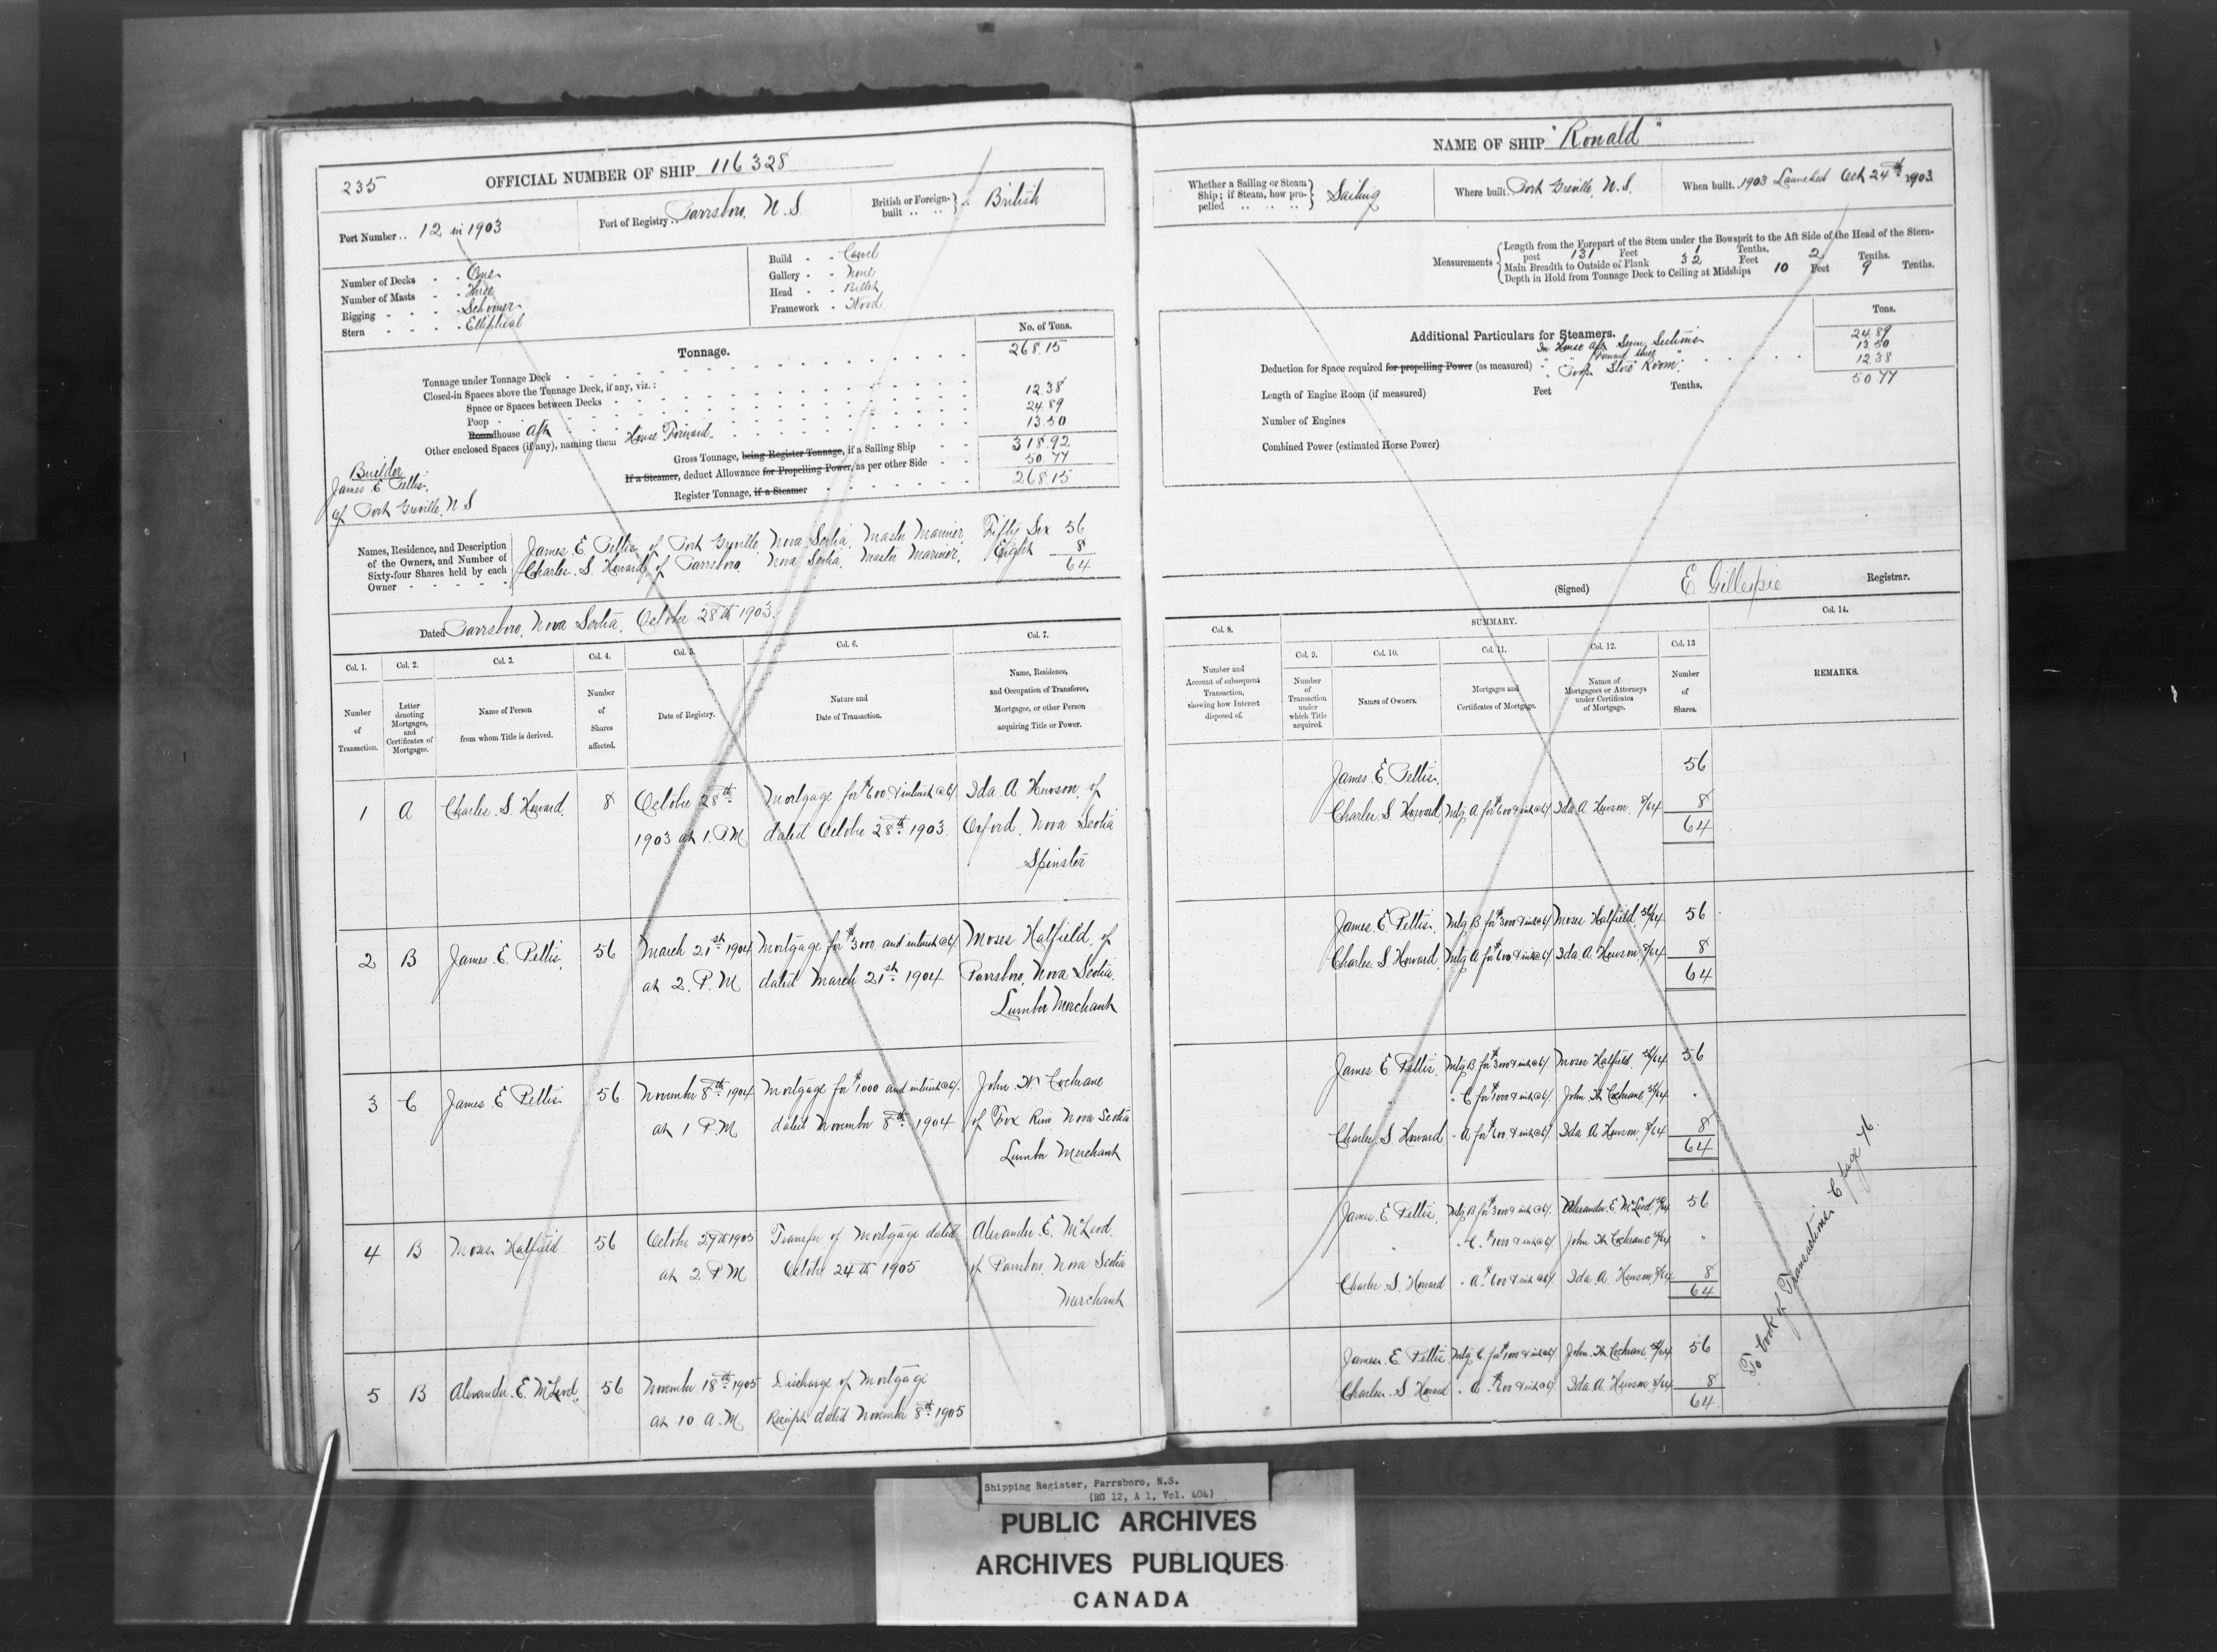 235
OFFICIAL NUMBER OF SHIP 116328
Port Number .. 12 in 1903
Port of Registry .. Parrsboro, N.S.
British or Foreign-built .. British
Number of Decks - - One
Number of Masts - - Three
Rigging - - - - Schooner
Stern - - - - Elliptical
Build - - Carvel
Gallery - - None
Head - - Billet
Framework - Wood
Tonnage.
No. of Tons.
Tonnage under Tonnage Deck 268.15
Closed-in Spaces above the Tonnage Deck, if any, viz.:
Space or Spaces between Decks
Poop 12.38
Roundhouse Aft 24.89
Other enclosed Spaces (if any), naming them House Forward 13.50
Gross Tonnage, being Register Tonnage, if a Sailing Ship 318.92
If a Steamer, deduct Allowance for Propelling Power, as per other Side 50.77
Register Tonnage, if a Steamer 268.15
Builder
James E. Pettis,
of Port Greville, N.S
Names, Residence, and Description of the Owners, and Number of Sixty-four Shares held by each Owner
James E. Pettis of Port Greville, Nova Scotia, Master Mariner, Fifty Six 56
Charles S. Howard, of Parrsboro, Nova Scotia, Master Mariner, Eight 8
64
Dated Parrsboro, Nova Scotia, October 28th 1903.
Col. 1. Col. 2. Col. 3. Col. 4. Col. 5. Col. 6. Col. 7.
Number of Transaction.
Letter denoting Mortgages, and Certificates of Mortgages.
Name of Person from whom Title is derived.
Number of Shares affected.
Date of Registry.
Nature and Date of Transaction.
Name, Residence, and Occupation of Transferee, Mortgagee, or other Person acquiring Title or Power.
1 A Charles S. Howard. 8 October 28th Mortgage for $600 & interest @ 6% Ida A. Hewson, of
1903 at 1. P.M dated October 28th 1903. Oxford, Nova Scotia
Spinster
2 B James E. Pettis, 56 March 21st 1904 Mortgage for $3000 and interest @ 6% Moses Hatfield, of
at 2. P.M dated March 21st 1904 Parrsboro, Nova Scotia.
Lumber Merchant
3 C James E Pettis 56 November 8th 1904 Mortgage for $1000 and interest @ 6% John W Cochrane
at 1 P.M dated November 8th 1904 of Fox River Nova Scotia
Lumber Merchant
4 B Moses Hatfield 56 October 27th 1905 Transfer of Mortgage dated Alexander E. McLeod
at 2 P.M October 24th 1905 of Parrsboro, Nova Scotia
Merchant
5 B Alexander E. McLeod. 56 November 18th 1905 Discharge of Mortgage
at 10 A.M Receipt dated November 8th 1905
NAME OF SHIP "Ronald"
Whether a Sailing or Steam Ship; if Steam, how propelled Sailing
Where built. Port Greville, N.S.
When built. 1903 Launched Oct 24th 1903
Measurements
Length from the Forepart of the Stem under the Bowsprit to the Aft Side of the Head of the Stern-
post 131 Feet 1 Tenths.
Main Breadth to Outside of Plank 32 Feet 2 Tenths.
Depth in Hold from Tonnage Deck to Ceiling at Midships 10 Feet 9 Tenths.
Additional Particulars for Steamers.
Tons.
In House aft Seven Sections 24.89
" " Forward three " 13.50
Deduction for Space required for propelling Power (as measured) " Poop Store Room 12.38
50.77
Length of Engine Room (if measured) Feet Tenths.
Number of Engines
Combined Power (estimated Horse Power)
(Signed) E Gillespie Registrar.
SUMMARY.
Col. 8. Col. 9. Col. 10. Col. 11. Col. 12. Col. 13 Col. 14.
Number and Account of subsequent Transaction, showing how Interest disposed of.
Number of Transaction under which Title acquired.
Names of Owners.
Mortgages and Certificates of Mortgage.
Names of Mortgagees or Attorneys under Certificates of Mortgage.
Number of Shares.
REMARKS.
James E. Pettis, 56
Charles S Howard, Mtg A for $600 & int @ 6% Ida A Hewson, 8/64 8
64
James E. Pettis, Mtg B for $3000 & int @ 6% Moses Hatfield, 56/64 56
Charles S. Howard, Mtg A for $600 & int @ 6% Ida A. Hewson 8/64 8
64
James E Pettis, Mtg B for $3000 & int @ 6% Moses Hatfield, 56/64 56
" C for $1000 & int @ 6% John W Cochrane 56/64 "
Charles S. Howard " A for $600 & int @ 6% Ida A Hewson, 8/64 8
64
James E. Pettis, Mtg B for $3000 & int @ 6% Alexander E. McLeod 56/64 56
" " C. $1000 & int @ 6% John W Cochrane 56/64 "
Charles S. Howard " A $600 & int @ 6% Ida A. Hewson 8/64 8
64
James E. Pettis Mtg C. for $1000 & int @ 6% John W Cochrane 56/64 56
Charles S Howard " A $600 & int @ 6% Ida A. Hewson 8/64 8
64
To book of Transactions C page 76.
Shipping Register, Parrsboro, N.S.
(RG 12, A 1, Vol. 404)
PUBLIC ARCHIVES
ARCHIVES PUBLIQUES
CANADA